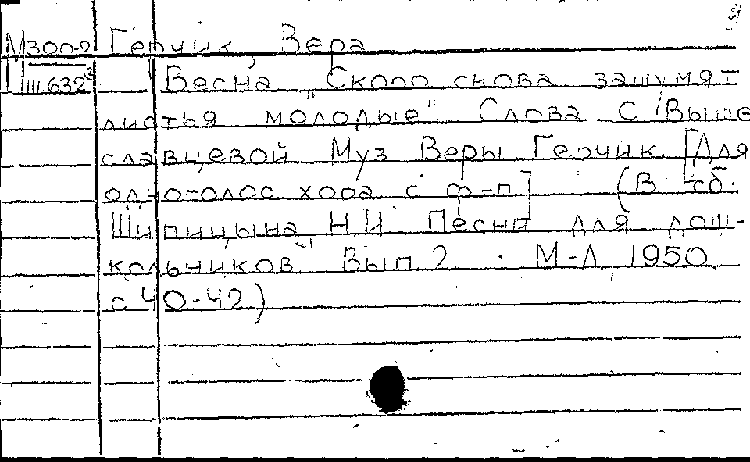 М300-2 Герчик, Вера
Ш632³ Весна „Скоро снова зашумят
листья молодые" Слова С Выше
славцевой Муз Веры Герчик [Для
одноголос хора с ф-п] (В сб.
Шипицына Н И Песни для дош-
кольников Вып 2 . М-Л 1950
с 40-42)